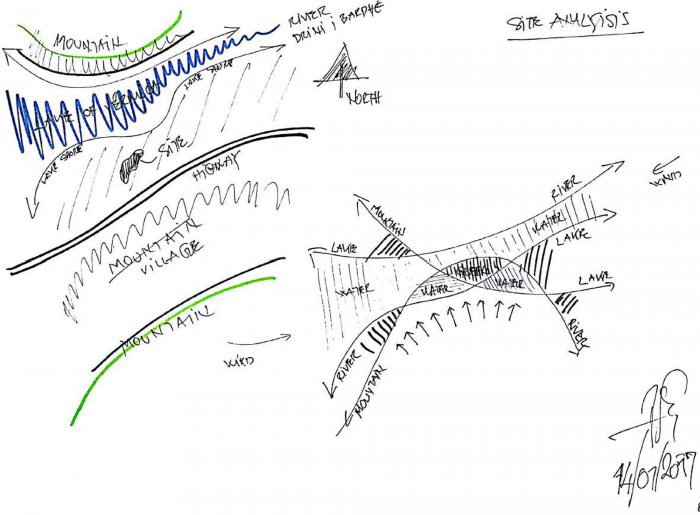 SITE ANALYSIS
RIVER
DRINI I BARDHE
MOUNTAIN
LAKE SHORE
LAKE OF VERMICA
NORTH
LAKE SHORE
SITE
HIGHWAY
MOUNTAIN
VILLAGE
MOUNTAIN
WIND
WIND
RIVER
MOUNTAIN
WATER
LAKE
LAKE
WATER
WATER
WATER
LAKE
RIVER
RIVER
MOUNTAIN
14/07/2017